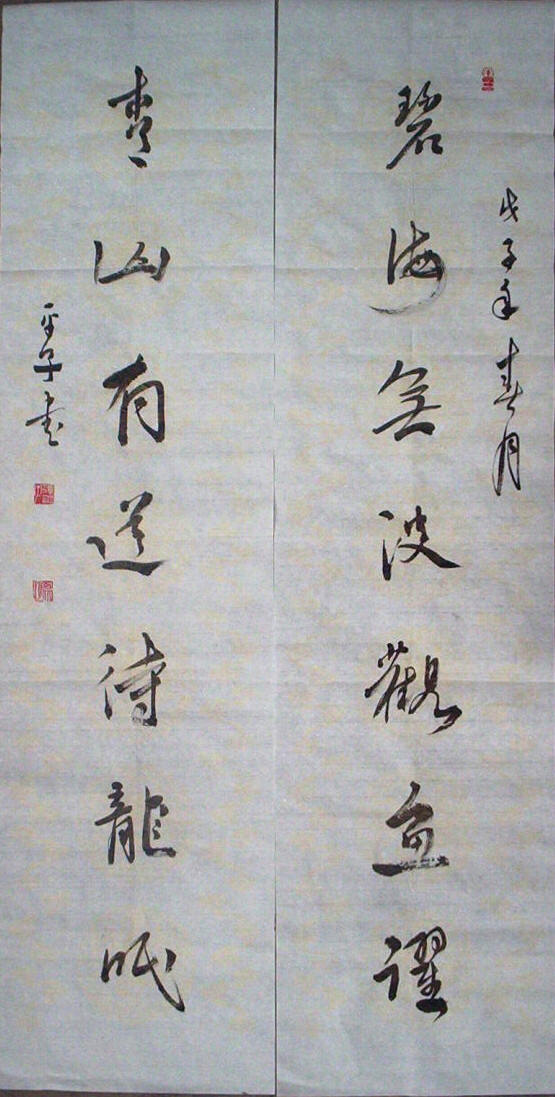 戊子年春月
碧海無波觀魚躍
青山有道待龍眠
平子書